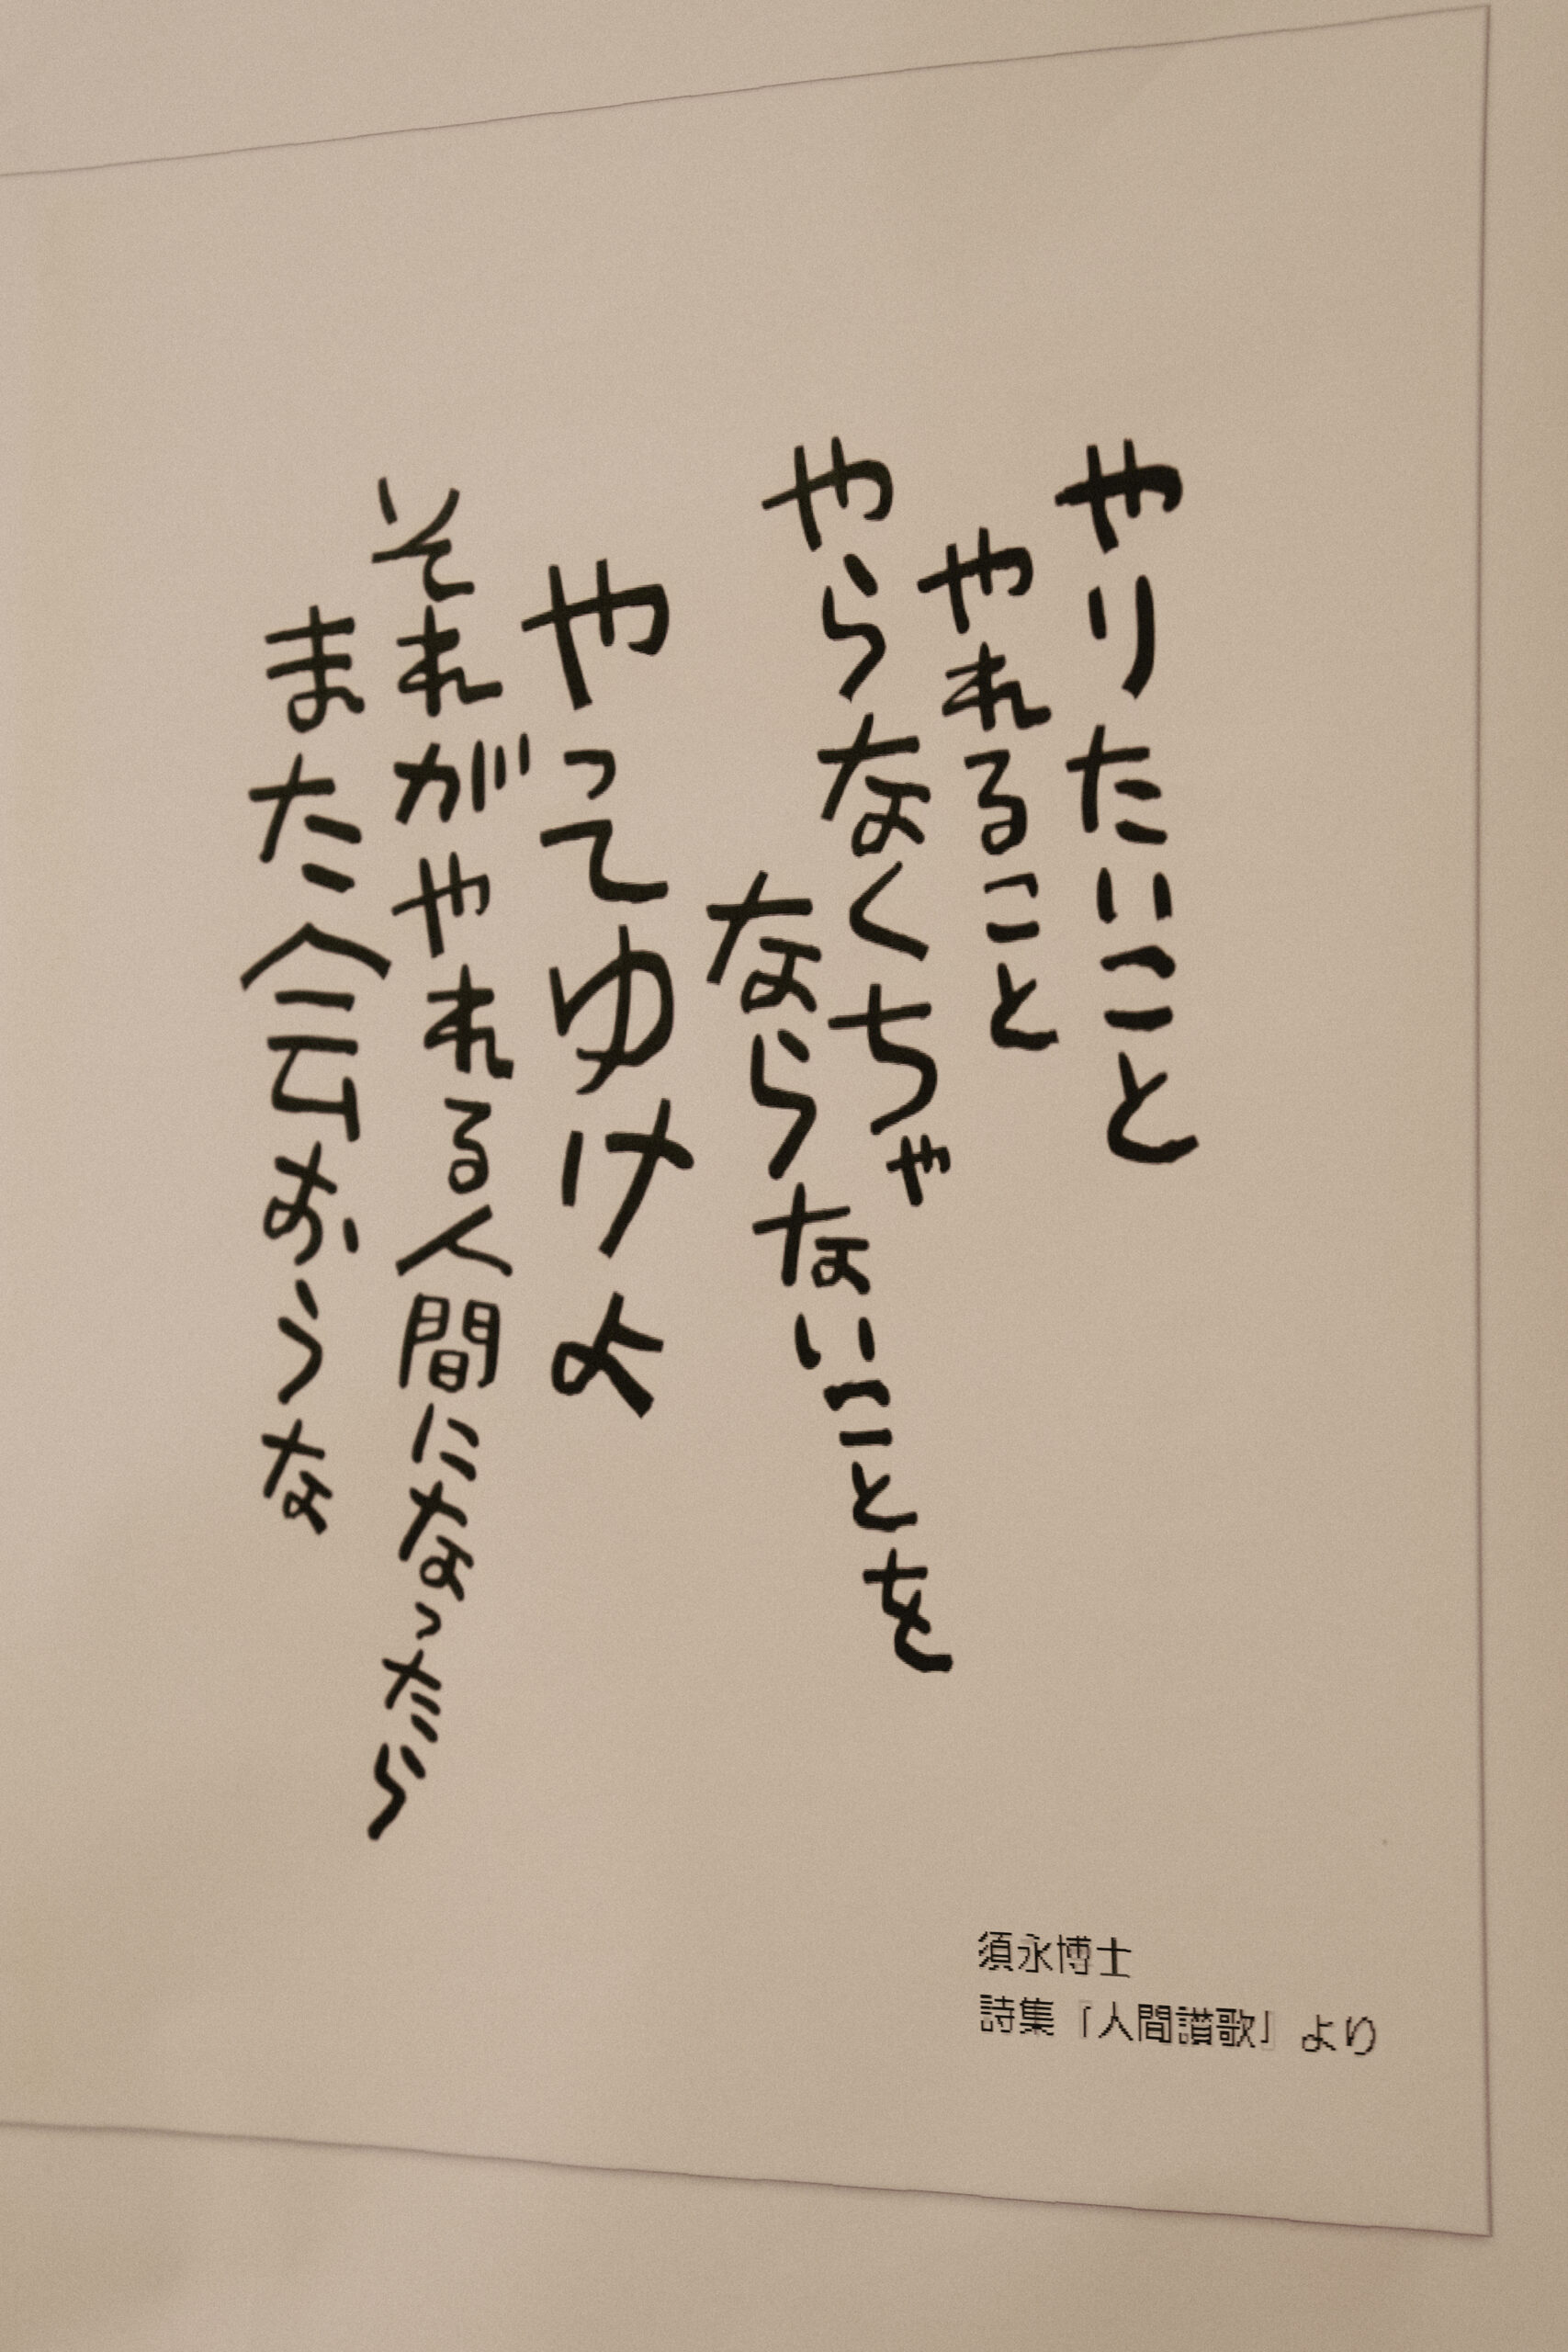 やりたいこと
やれること
やらなくちゃ
ならないことを
やってゆけよ
それがやれる人間になったら
また会おうな
須永博士
詩集「人間讃歌」より